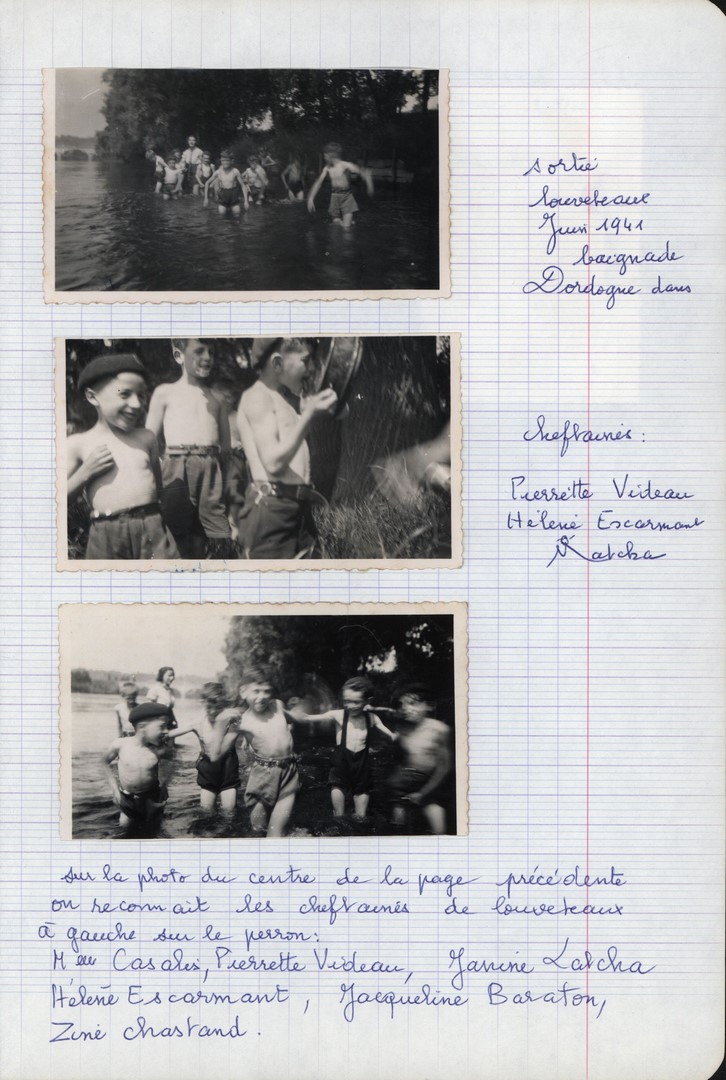 sortie
louveteaux
Juin 1941
baignade
Dordogne dans
cheftaines :
Pierrette Videau
Hélène Escarmant
Latcha
sur la photo du centre de la page précédente
on reconnait les cheftaines de louveteaux
à gauche sur le perron :
Melle Casalis, Pierrette Videau, Janine Latcha
Hélène Escarmant, Jacqueline Baraton,
Ziné chastand.